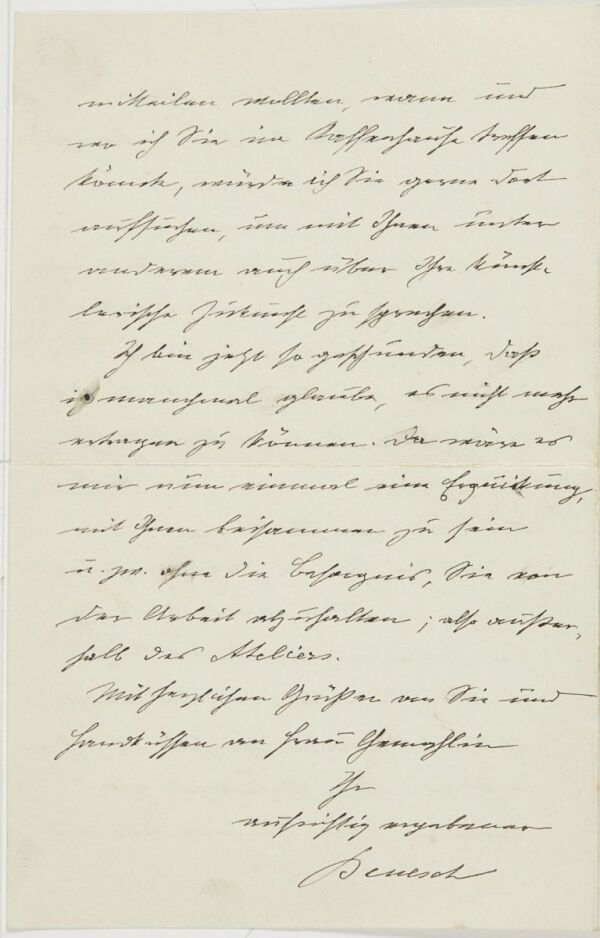 mitteilen wollten, wann und
wo ich Sie im Kaffeehause treffen
könnte, würde ich Sie gerne dort
aufsuchen, um mit Ihnen unter
anderem auch über Ihre künst-
lerische Zukunft zu sprechen.
Ich bin jetzt so geschunden, daß
ich manchmal glaube, es nicht mehr
ertragen zu können. Da wäre es
mir nun einmal eine Erquickung,
mit Ihnen beisammen zu sein
u. zw. ohne die Besorgnis, Sie von
der Arbeit abzuhalten; also außer-
halb des Ateliers.
Mit herzlichen Grüßen an Sie und
Handküssen an Frau Gemahlin
Ihr
aufrichtig ergebener
Benesch